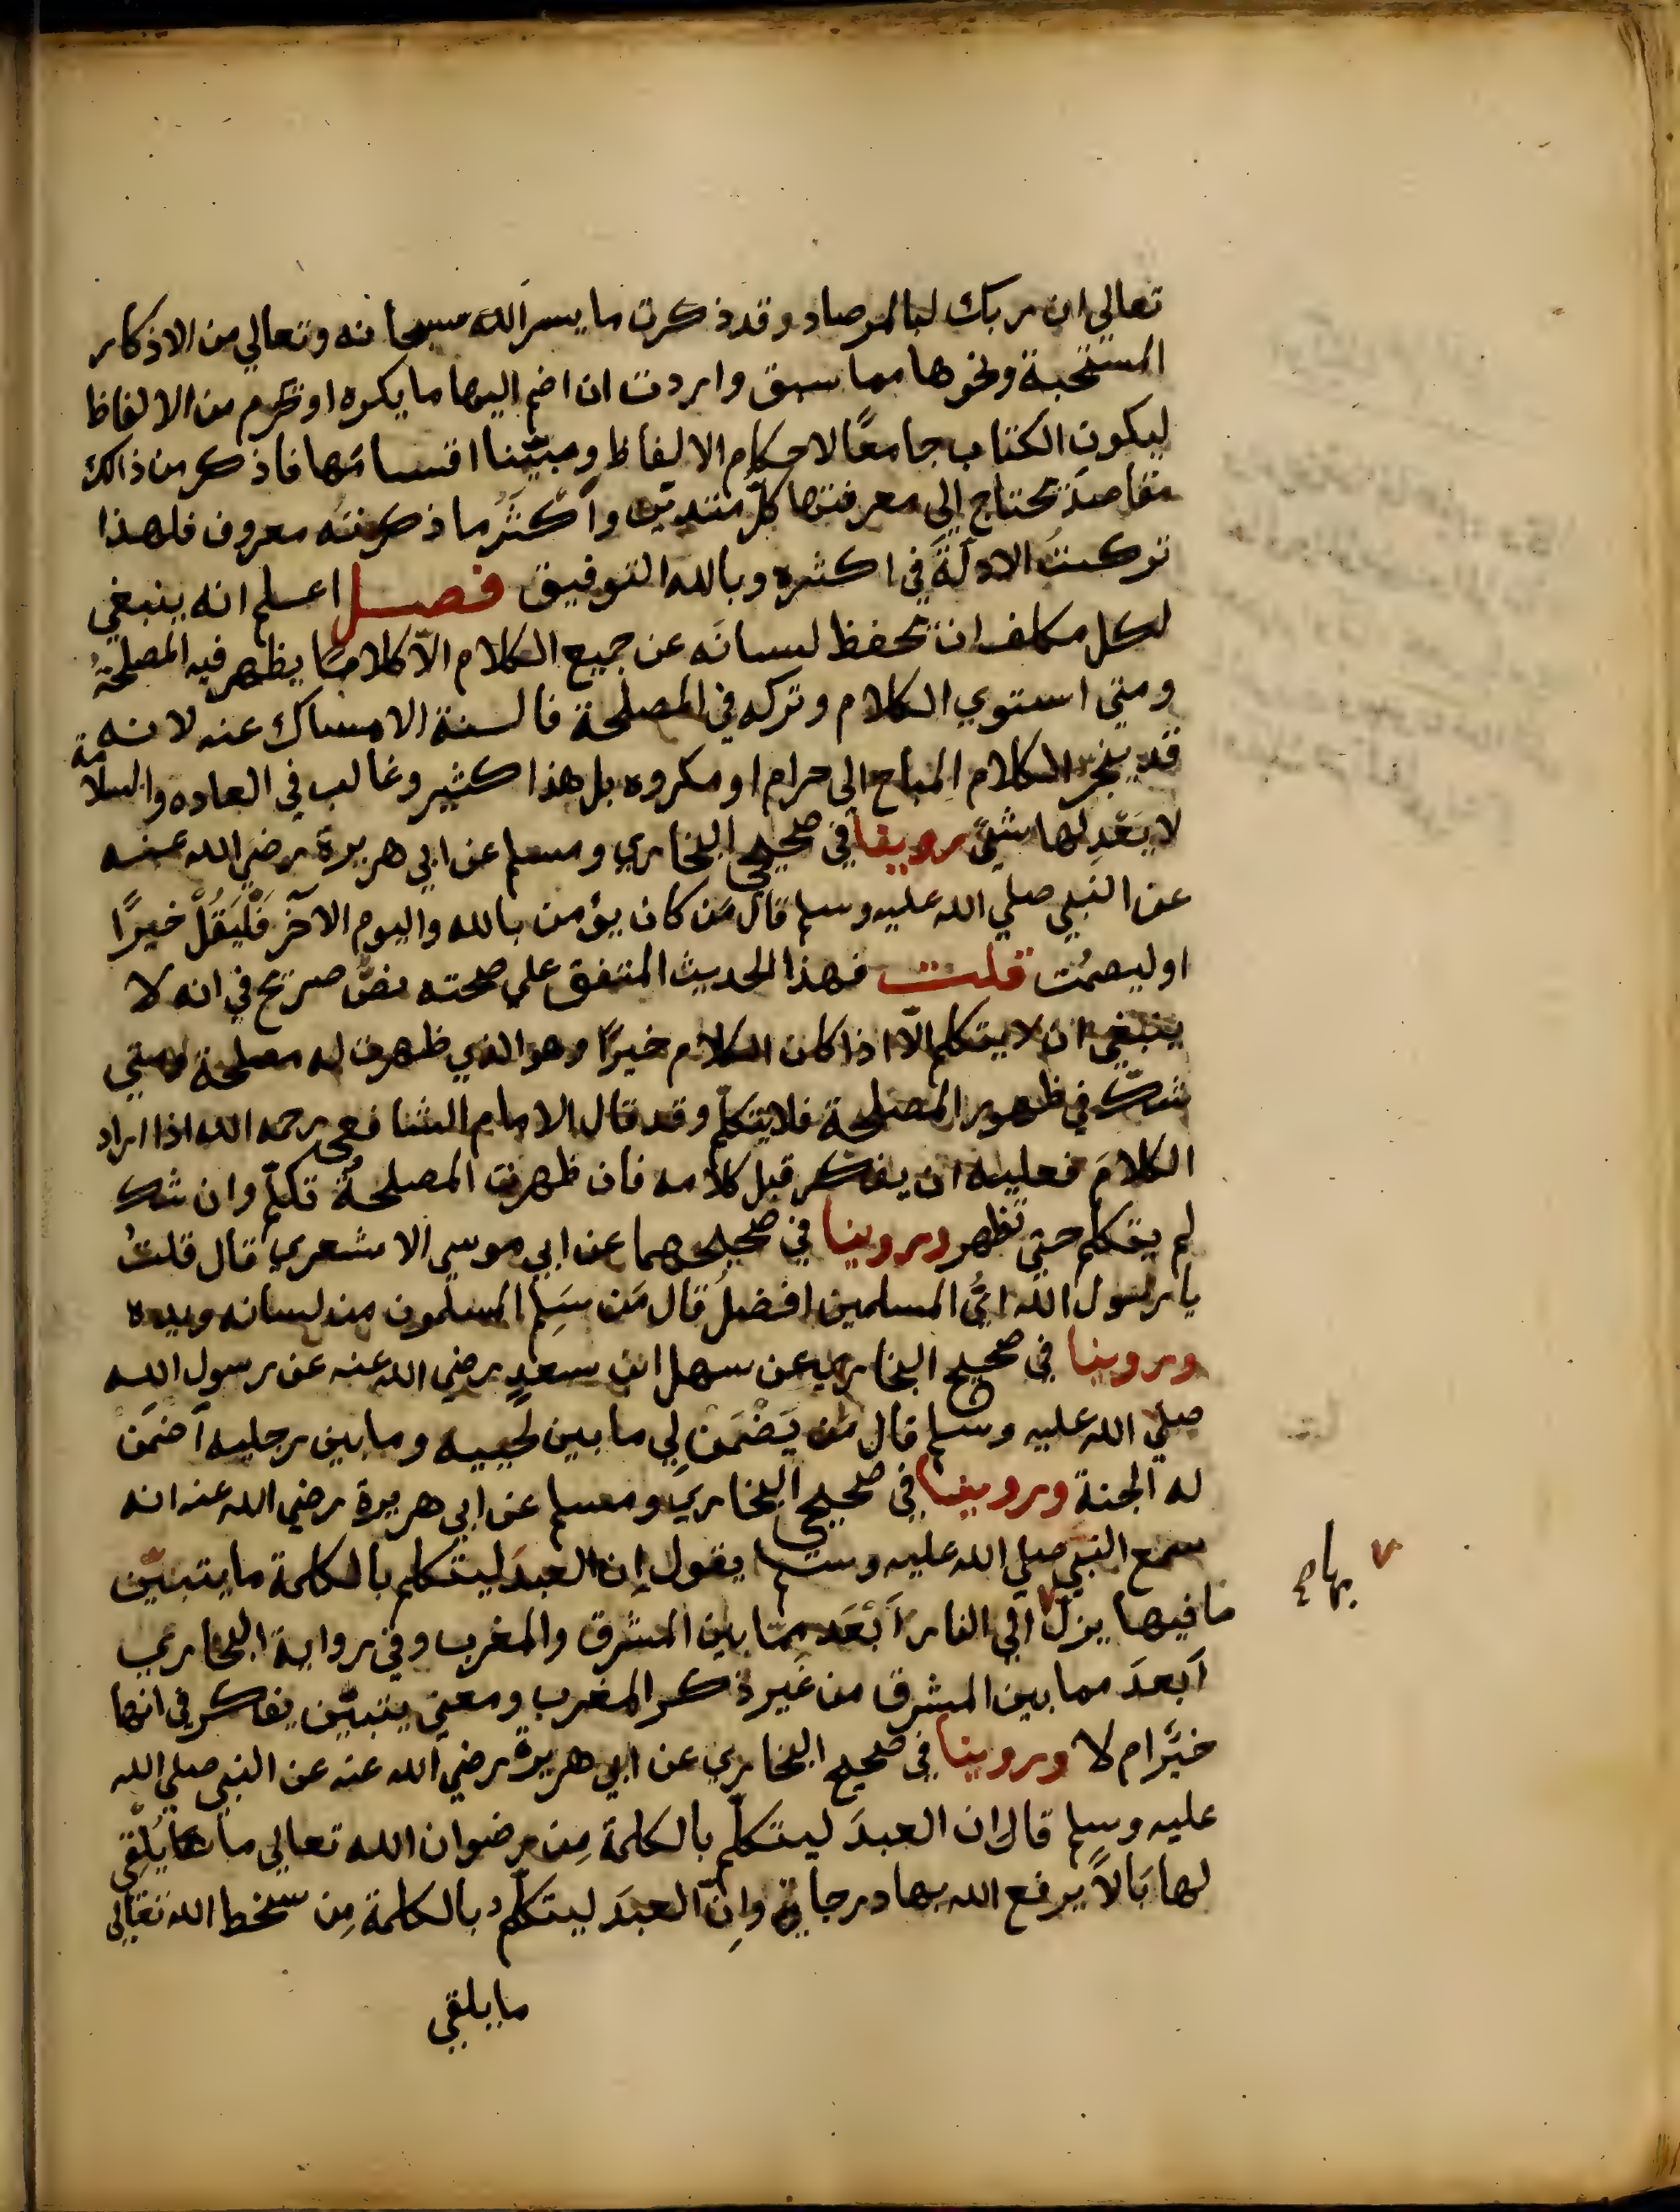 تعالي ان ربك لبالمرصاد وقد ذكرت ما يسر الله سبحانه وتعالي من الاذكار
المستحبة ونحوها مما سبق واردت ان اضم اليها ما يكره او يحرم من الالفاظ
ليكون الكتاب جامعًا لاحكام الالفاظ ومبيّنا اقسامَها فاذكر من ذالك
مقاصدَ يحتاج إلي معرفتها كلّ متديّن واكْثَرُ ما ذكرته معروف فلهذا
تركتُ الادلّةَ في اكثره وبالله التوفيق فصل اعلم انه ينبغي
لكل مكلف ان يحفظ لسانَه عن جميع الكلام الّا كلاما يظهر فيه المصلحةُ
ومتي استوي الكلام وتركه في المصلحة فالسنة الامساك عنه لانه
قد ينجرّ الكلام المباح الي حرام او مكروه بل هذا كثير وغالب في العاده والسلامة
لا يَعْدِلها شيئٌ روينا في صحيحي البخاري ومسلم عن ابي هريرة رضي الله عنه
عن النبي صلي الله عليه وسلم قال مَن كان يؤمن بالله واليوم الآخر فَلْيَقُلْ خيرًا
او ليصمُت قلت فهذا الحديث المتفق علي صحته نصٌّ صريح في انه لا
ينبغي ان لا يتكلم الّا اذا كان الكلام خيرًا وهو الذي ظهرت له مصلحة ومتي
شكّ في ظهور المصلحة فلا يتكلّم وقد قال الامام الشافعي رحمه الله اذا اراد
الكلامَ فعليه ان يفكر قبل كلامه فان ظهرت المصلحةُ تكلّم وان شك
لم يتكلم حتي تظهر وروينا في صحيحهما عن ابي موسي الاشعري قال قلتُ
يا رسول الله ايُّ المسلمين افضلُ قال مَن سَلِم المسلمون من لسانه ويده
وروينا في صحيح البخاري عن سهل ابن سعدٍ رضي الله عنه عن رسول الله
صلي الله عليه وسلم قال مَن يَضْمَنْ لِي ما بين لَحييه وما بين رجليه أضمَنْ
له الجنة وروينا في صحيحي البخاري ومسلم عن ابي هريرة رضي الله عنه انه
سمع النبي صلي الله عليه وسلم يقول إن العبدَ ليتكلم بالكلمة ما يتبيّن
ما فيها يزلّ الي النار أَبْعَد مما بين المشرق والمغرب وفي رواية البخاري
أبعدَ مما بين المشرق من غير ذكر المغرب ومعني يتبيّن يفكر في انها
خيرٌ ام لا وروينا في صحيح البخاري عن ابي هريرة رضي الله عنه عن النبي صلي الله
عليه وسلم قال ان العبدَ ليتكلّم بالكلمة مِن رضوان الله تعالي ما يُلْقِي
لها بَالًا يرفع الله بها درجاتٍ وإنّ العبدَ ليتكلّم بالكلمة مِن سخط الله تعالي
ما يلقي
بها